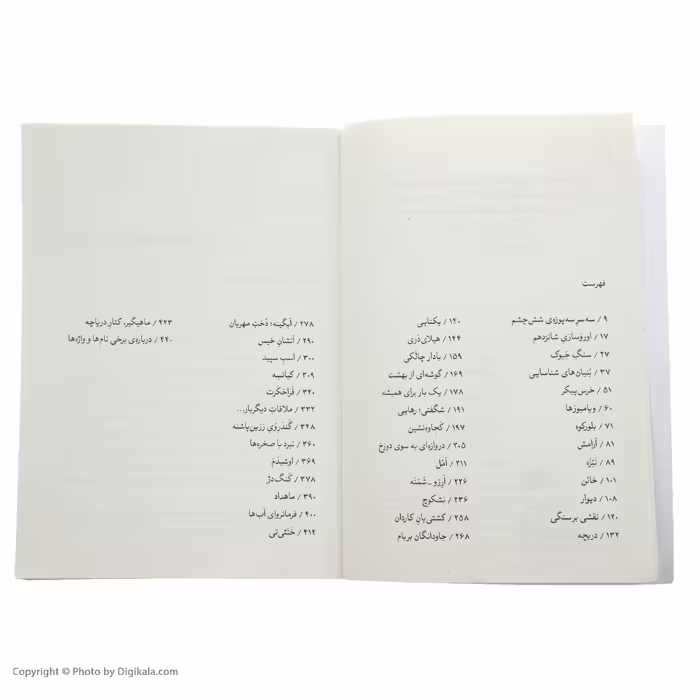 فهرست
۹ / سه‌سرِ سه‌پوزه‌ی شش‌چشم
۱۷ / اوروَسارَیِ شانزدهم
۲۷ / سنگِ جَبوک
۳۷ / بُنیان‌های شناسایی
۵۱ / خرس‌پیکر
۶۰ / ویامبورَها
۷۱ / بلورکوه
۸۱ / آرامش
۸۹ / نَیْزَه
۱۰۱ / خائن
۱۰۸ / دیوار
۱۲۰ / نقشی بر سنگی
۱۳۲ / دریچه
۱۴۰ / یکتایی
۱۴۴ / هیلای دَری
۱۵۹ / بادار چالَکی
۱۶۹ / گوشه‌ای از بهشت
۱۷۸ / یک بار برای همیشه
۱۹۱ / شگفتی؛ رهایی
۱۹۷ / کَجاوه‌نشین
۲۰۵ / دروازه‌ای به سوی دوزخ
۲۱۱ / آمُل
۲۲۶ / آرزو ـ شَمَنَه
۲۳۶ / بَشکوچ
۲۵۸ / کشتی‌بانِ کاردان
۲۶۸ / جاودانگان بر بام
۲۷۸ / آبگینه؛ دُختِ مهربان
۲۹۰ / آتشانِ خیس
۳۰۰ / اسبِ سپید
۳۰۹ / کیانسِه
۳۲۰ / فَراخکَرت
۳۳۲ / ملاقاتِ دیگربار...
۳۴۸ / گَندَروَیِ زرّین‌پاشنه
۳۶۰ / نبرد با صخره‌ها
۳۶۹ / اوشیدَم
۳۷۸ / کَنگ‌دژ
۳۹۰ / ماهداد
۴۰۰ / فرمانروای آب‌ها
۴۱۴ / خَنَثی‌تی
۴۲۳ / ماهیگیر، کنارِ دریاچه
۴۴۰ / درباره‌ی برخی نام‌ها و واژه‌ها
Copyright © Photo by Digikala.com